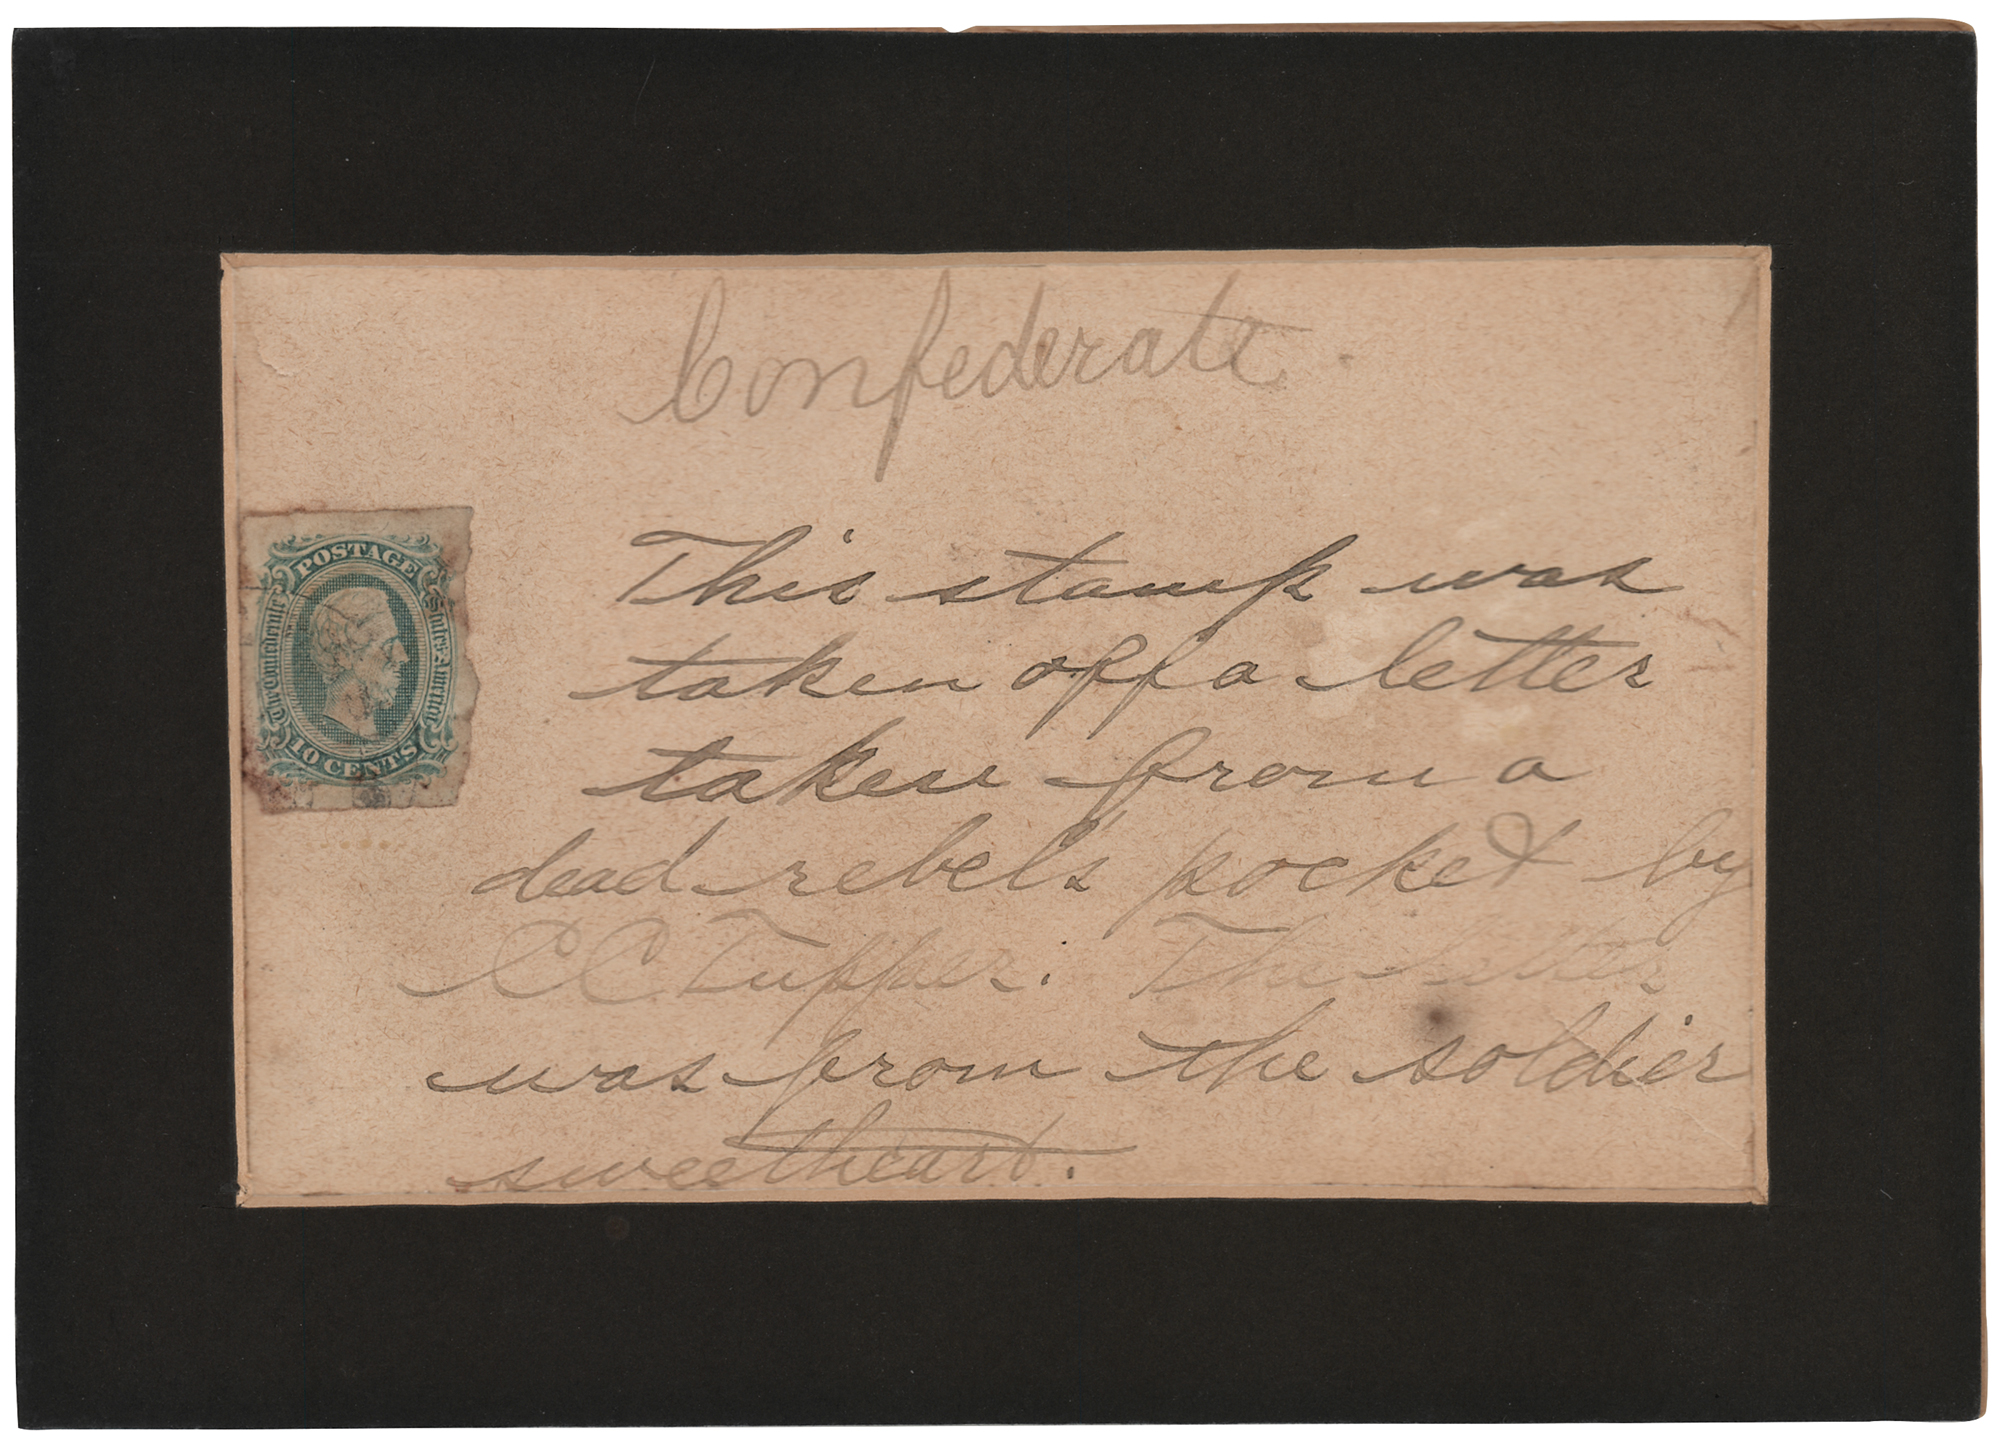 Confederate.
POSTAGE
The Confederate States of America
10 CENTS
This stamp was
taken off a letter
taken from a
dead rebel's pocket by
C C Tupper. The letter
was from the soldier
sweetheart.